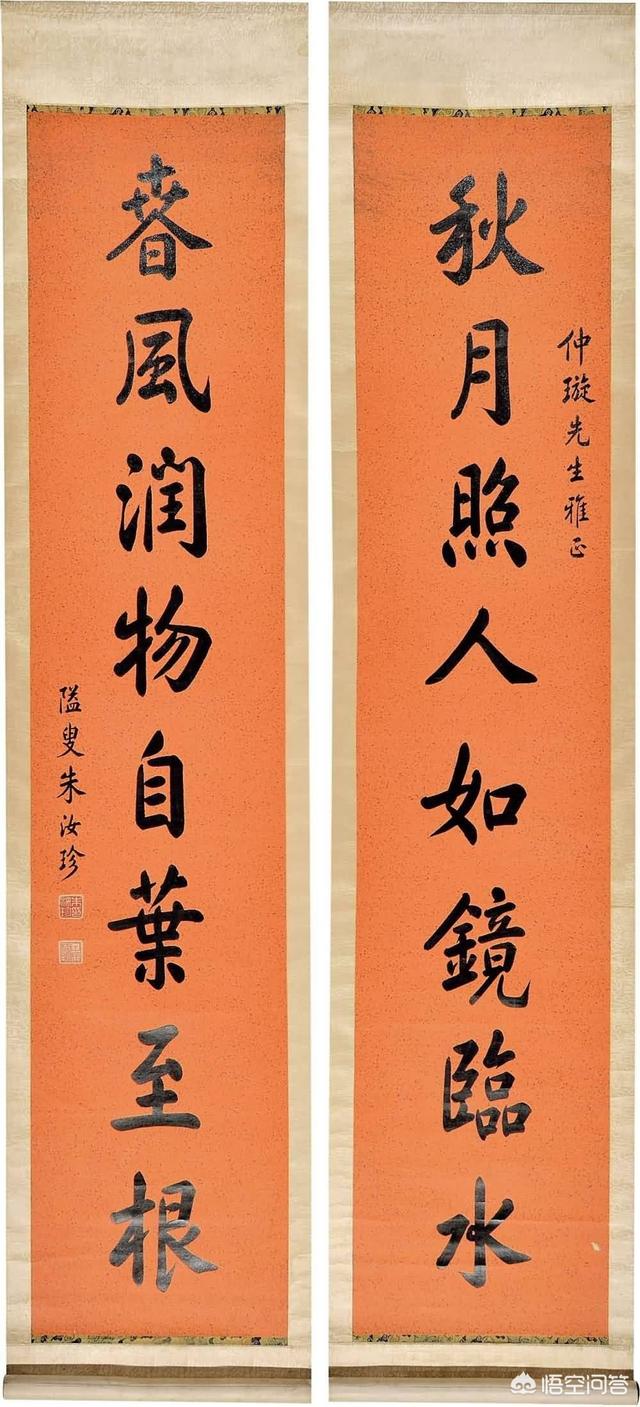 秋月照人如鏡臨水
仲璇先生雅正
春風潤物自葉至根
隘叟朱汝珍
悟空问答